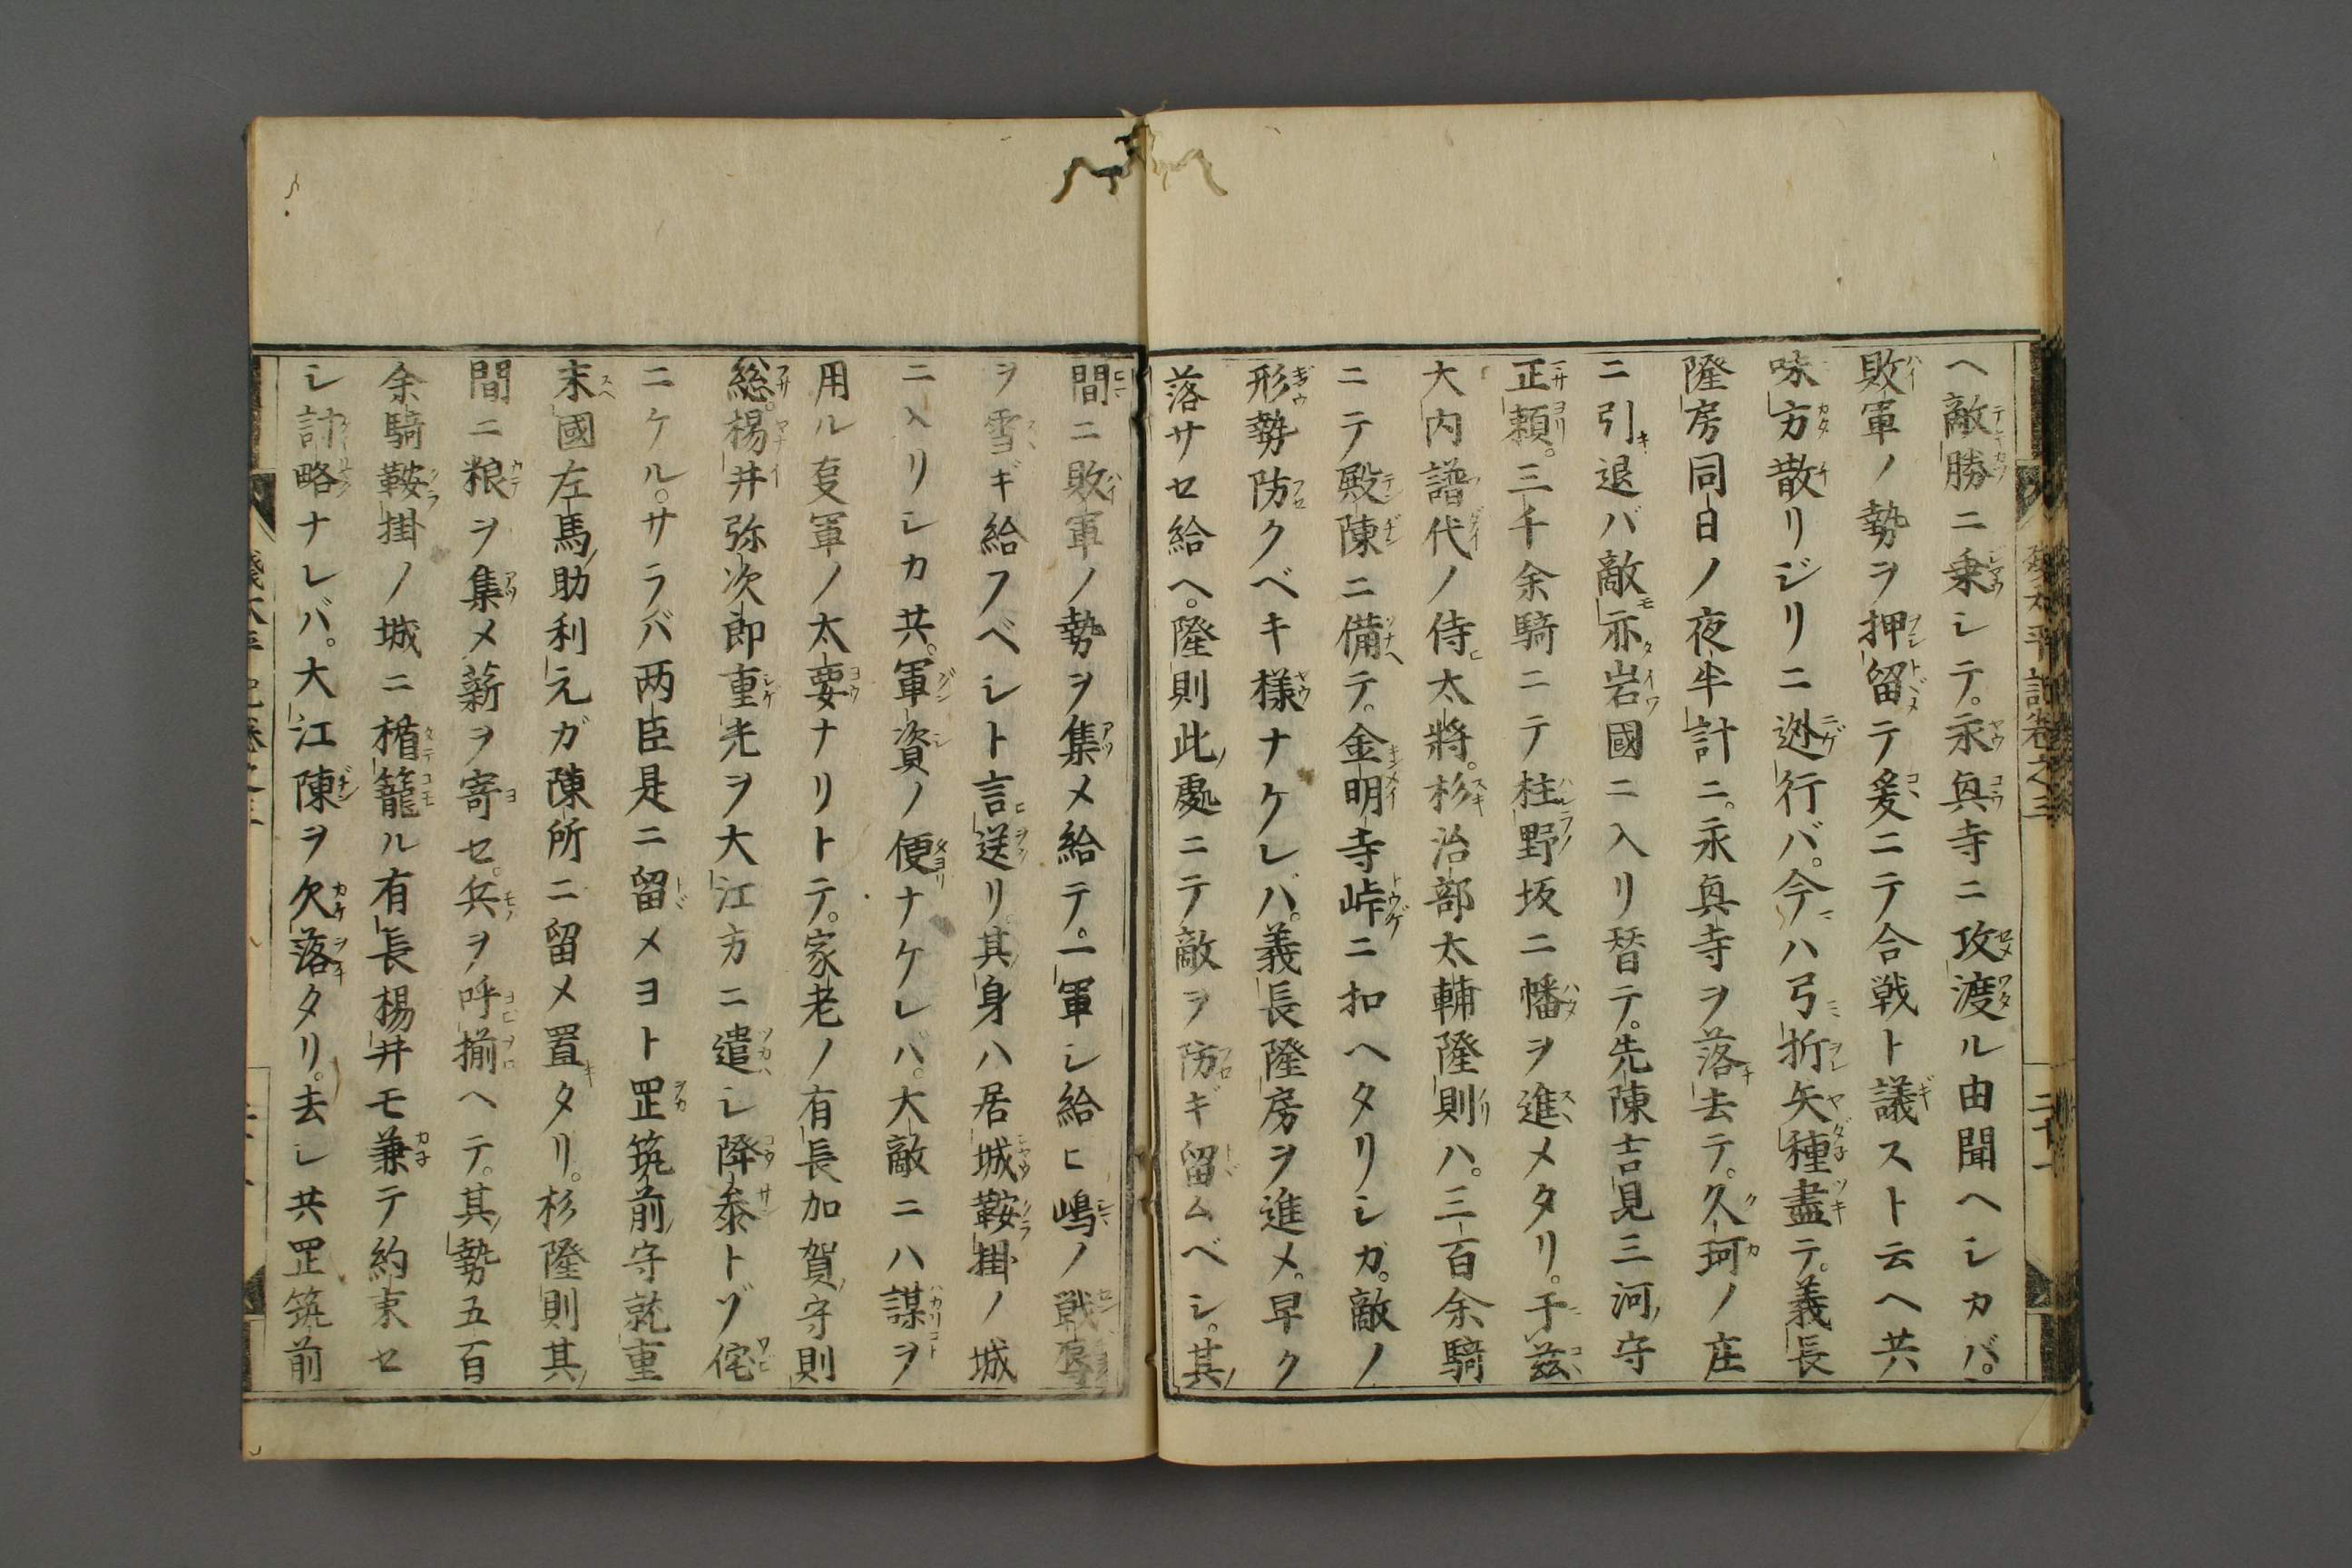 ヘ敵勝ニ乗シテ。永興寺ニ攻渡ル由聞ヘシカバ。
敗軍ノ勢ヲ押留テ爰ニテ合戦ト議スト云ヘ共
味方散リジリニ迯行バ。今ハ弓折矢種盡テ。義長
隆房同日ノ夜半計ニ。永興寺ヲ落去テ。久珂ノ庄
ニ引退バ敵亦岩國ニ入リ替テ。先陳吉見三河守
正頼。三千余騎ニテ柱野坂ニ幡ヲ進メタリ。于茲
大内譜代ノ侍太將。杉治部太輔隆則ハ。三百余騎
ニテ殿陳ニ備テ。金明寺峠ニ扣ヘタリシガ。敵ノ
形勢防クベキ様ナケレバ。義長隆房ヲ進メ。早ク
落サセ給ヘ。隆則此處ニテ敵ヲ防ギ留ムベシ。其
間ニ敗軍ノ勢ヲ集メ給テ。一軍シ給ヒ嶋ノ戦辱
ヲ雪ギ給フベシト言送リ其身ハ居城鞍掛ノ城
ニ入リシカ共。軍資ノ便ナケレバ。大敵ニハ謀ヲ
用ル叓軍ノ太要ナリトテ。家老ノ有長加賀守則
総。楊井弥次郎重光ヲ大江方ニ遣シ降参トゾ侘
ニケル。サラバ两臣是ニ留メヨト罡筑前守就重
末國左馬助利元ガ陳所ニ留メ置タリ。杉隆則其
間ニ粮ヲ集メ薪ヲ寄セ。兵ヲ呼揃ヘテ。其勢五百
余騎鞍掛ノ城ニ楯籠ル有長楊井モ兼テ約束セ
シ計略ナレバ。大江陳ヲ欠落タリ。去シ共罡筑前